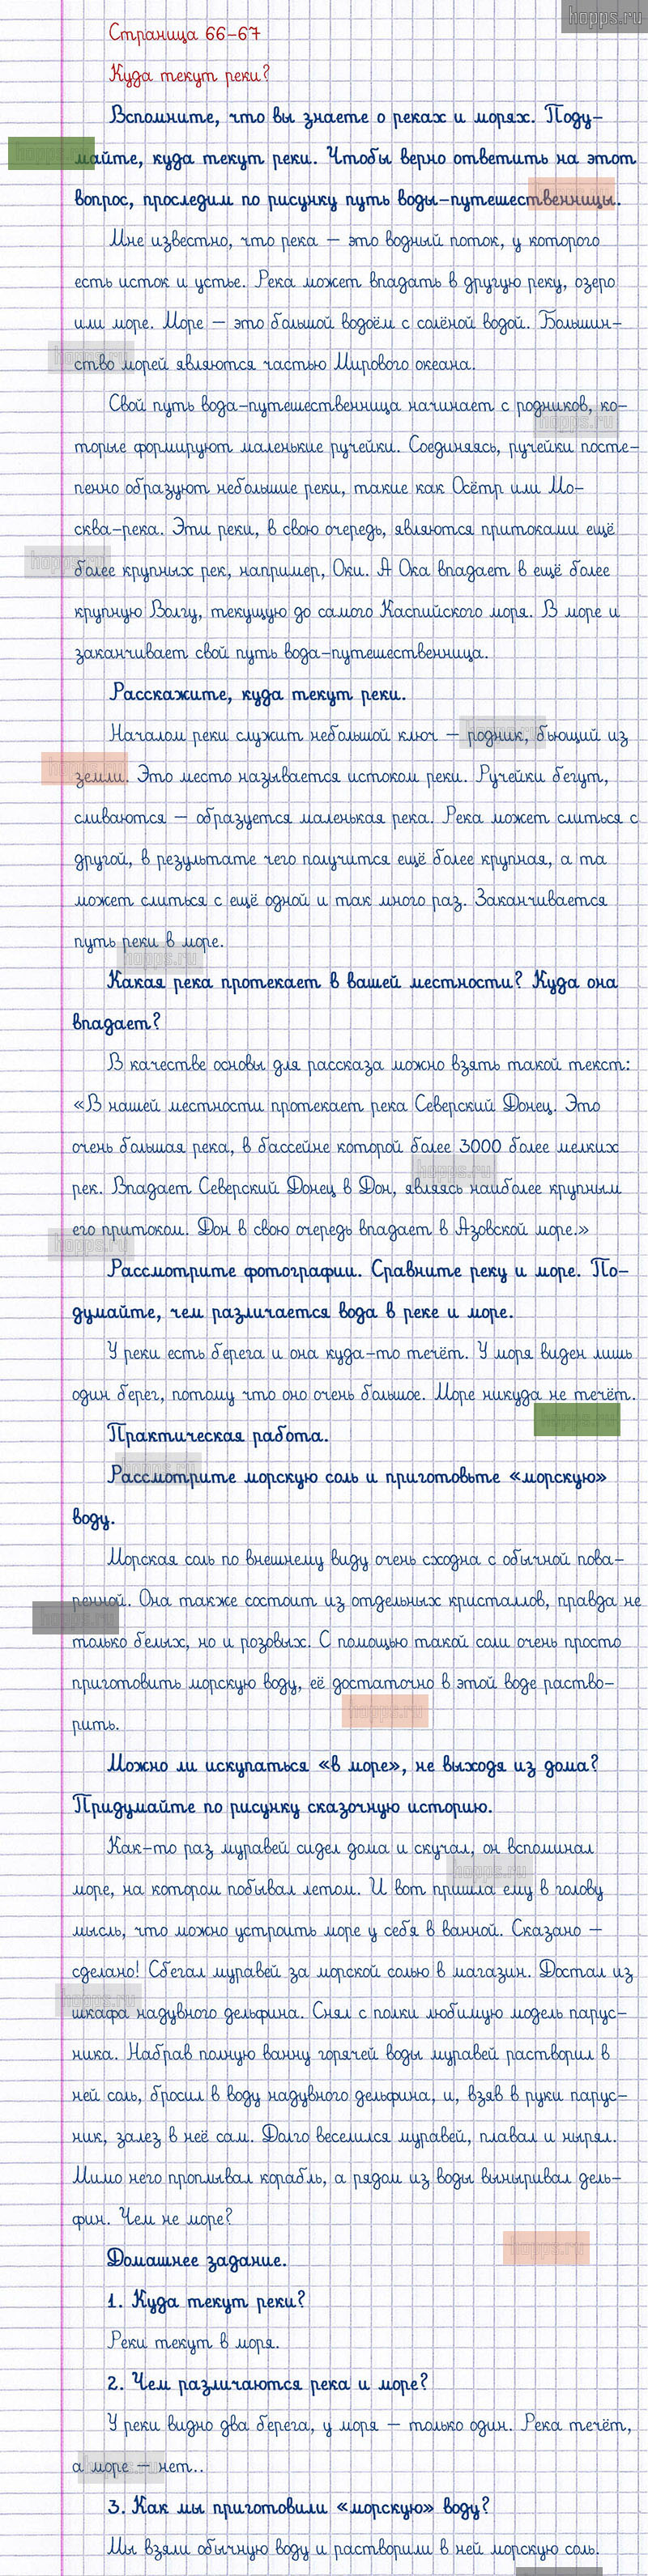 hopps.ru
Страница 66–67
Куда текут реки?
Вспомните, что вы знаете о реках и морях. Поду-
майте, куда текут реки. Чтобы верно ответить на этот
вопрос, проследим по рисунку путь воды-путешественницы.
Мне известно, что река – это водный поток, у которого
есть исток и устье. Река может впадать в другую реку, озеро
или море. Море – это большой водоём с солёной водой. Большин-
ство морей являются частью Мирового океана.
Свой путь вода-путешественница начинает с родников, ко-
торые формируют маленькие ручейки. Соединяясь, ручейки посте-
пенно образуют небольшие реки, такие как Осётр или Мо-
сква-река. Эти реки, в свою очередь, являются притоками ещё
более крупных рек, например, Оки. А Ока впадает в ещё более
крупную Волгу, текущую до самого Каспийского моря. В море и
заканчивает свой путь вода-путешественница.
Расскажите, куда текут реки.
Началом реки служит небольшой ключ – родник, бьющий из
земли. Это место называется истоком реки. Ручейки бегут,
сливаются – образуется маленькая река. Река может слиться с
другой, в результате чего получится ещё более крупная, а та
может слиться с ещё одной и так много раз. Заканчивается
путь реки в море.
Какая река протекает в вашей местности? Куда она
впадает?
В качестве основы для рассказа можно взять такой текст:
«В нашей местности протекает река Северский Донец. Это
очень большая река, в бассейне которой более 3000 более мелких
рек. Впадает Северский Донец в Дон, являясь наиболее крупным
его притоком. Дон в свою очередь впадает в Азовской море.»
Рассмотрите фотографии. Сравните реку и море. По-
думайте, чем различается вода в реке и море.
У реки есть берега и она куда-то течёт. У моря виден лишь
один берег, потому что оно очень большое. Море никуда не течёт.
Практическая работа.
Рассмотрите морскую соль и приготовьте «морскую»
воду.
Морская соль по внешнему виду очень сходна с обычной пова-
ренной. Она также состоит из отдельных кристаллов, правда не
только белых, но и розовых. С помощью такой соли очень просто
приготовить морскую воду, её достаточно в этой воде раство-
рить.
Можно ли искупаться «в море», не выходя из дома?
Придумайте по рисунку сказочную историю.
Как-то раз муравей сидел дома и скучал, он вспоминал
море, на котором побывал летом. И вот пришла ему в голову
мысль, что можно устроить море у себя в ванной. Сказано –
сделано! Сбегал муравей за морской солью в магазин. Достал из
шкафа надувного дельфина. Снял с полки любимую модель парус-
ника. Набрав полную ванну горячей воды муравей растворил в
ней соль, бросил в воду надувного дельфина, и, взяв в руки парус-
ник, залез в неё сам. Долго веселился муравей, плавал и нырял.
Мимо него проплывал корабль, а рядом из воды выныривал дель-
фин. Чем не море?
Домашнее задание.
1. Куда текут реки?
Реки текут в моря.
2. Чем различаются река и море?
У реки видно два берега, у моря – только один. Река течёт,
а море – нет..
3. Как мы приготовили «морскую» воду?
Мы взяли обычную воду и растворили в ней морскую соль.